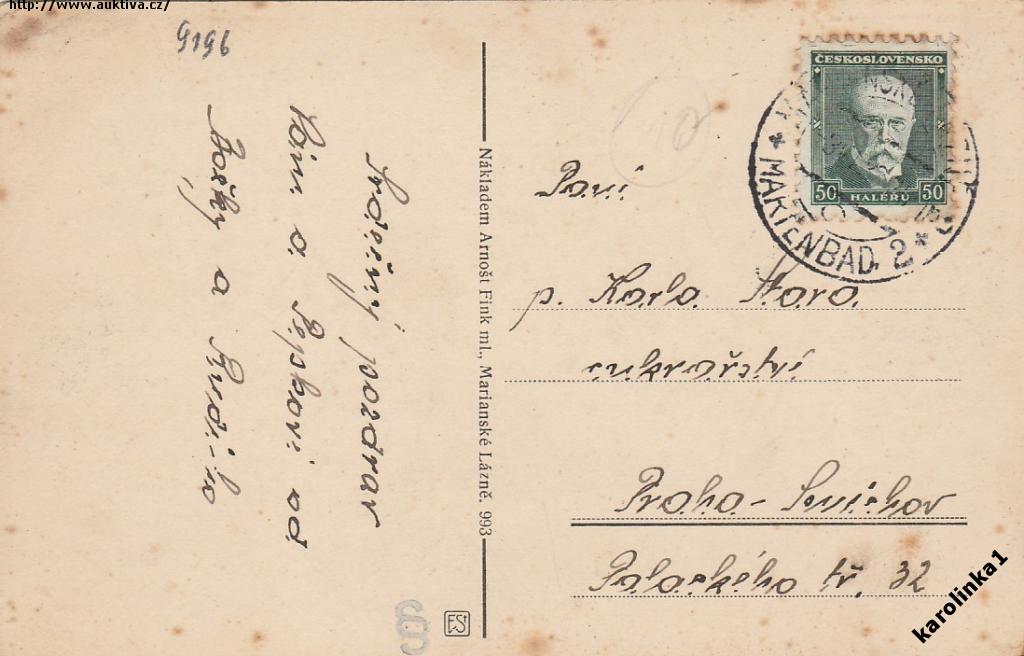 http://www.auktiva.cz/
9196
Srdečný pozdrav
Vám a Pepkovi od
Božky a Rudi-ho
Nákladem Arnošt Fink ml., Marianské Lázně. 993
ČESKOSLOVENSKO
50 HALÉŘŮ 50
* MARIENBAD. 2 *
Paní
p. Karla Stará
cukrářství
Praha - Smíchov
Palackého tř. 32
karolinka1